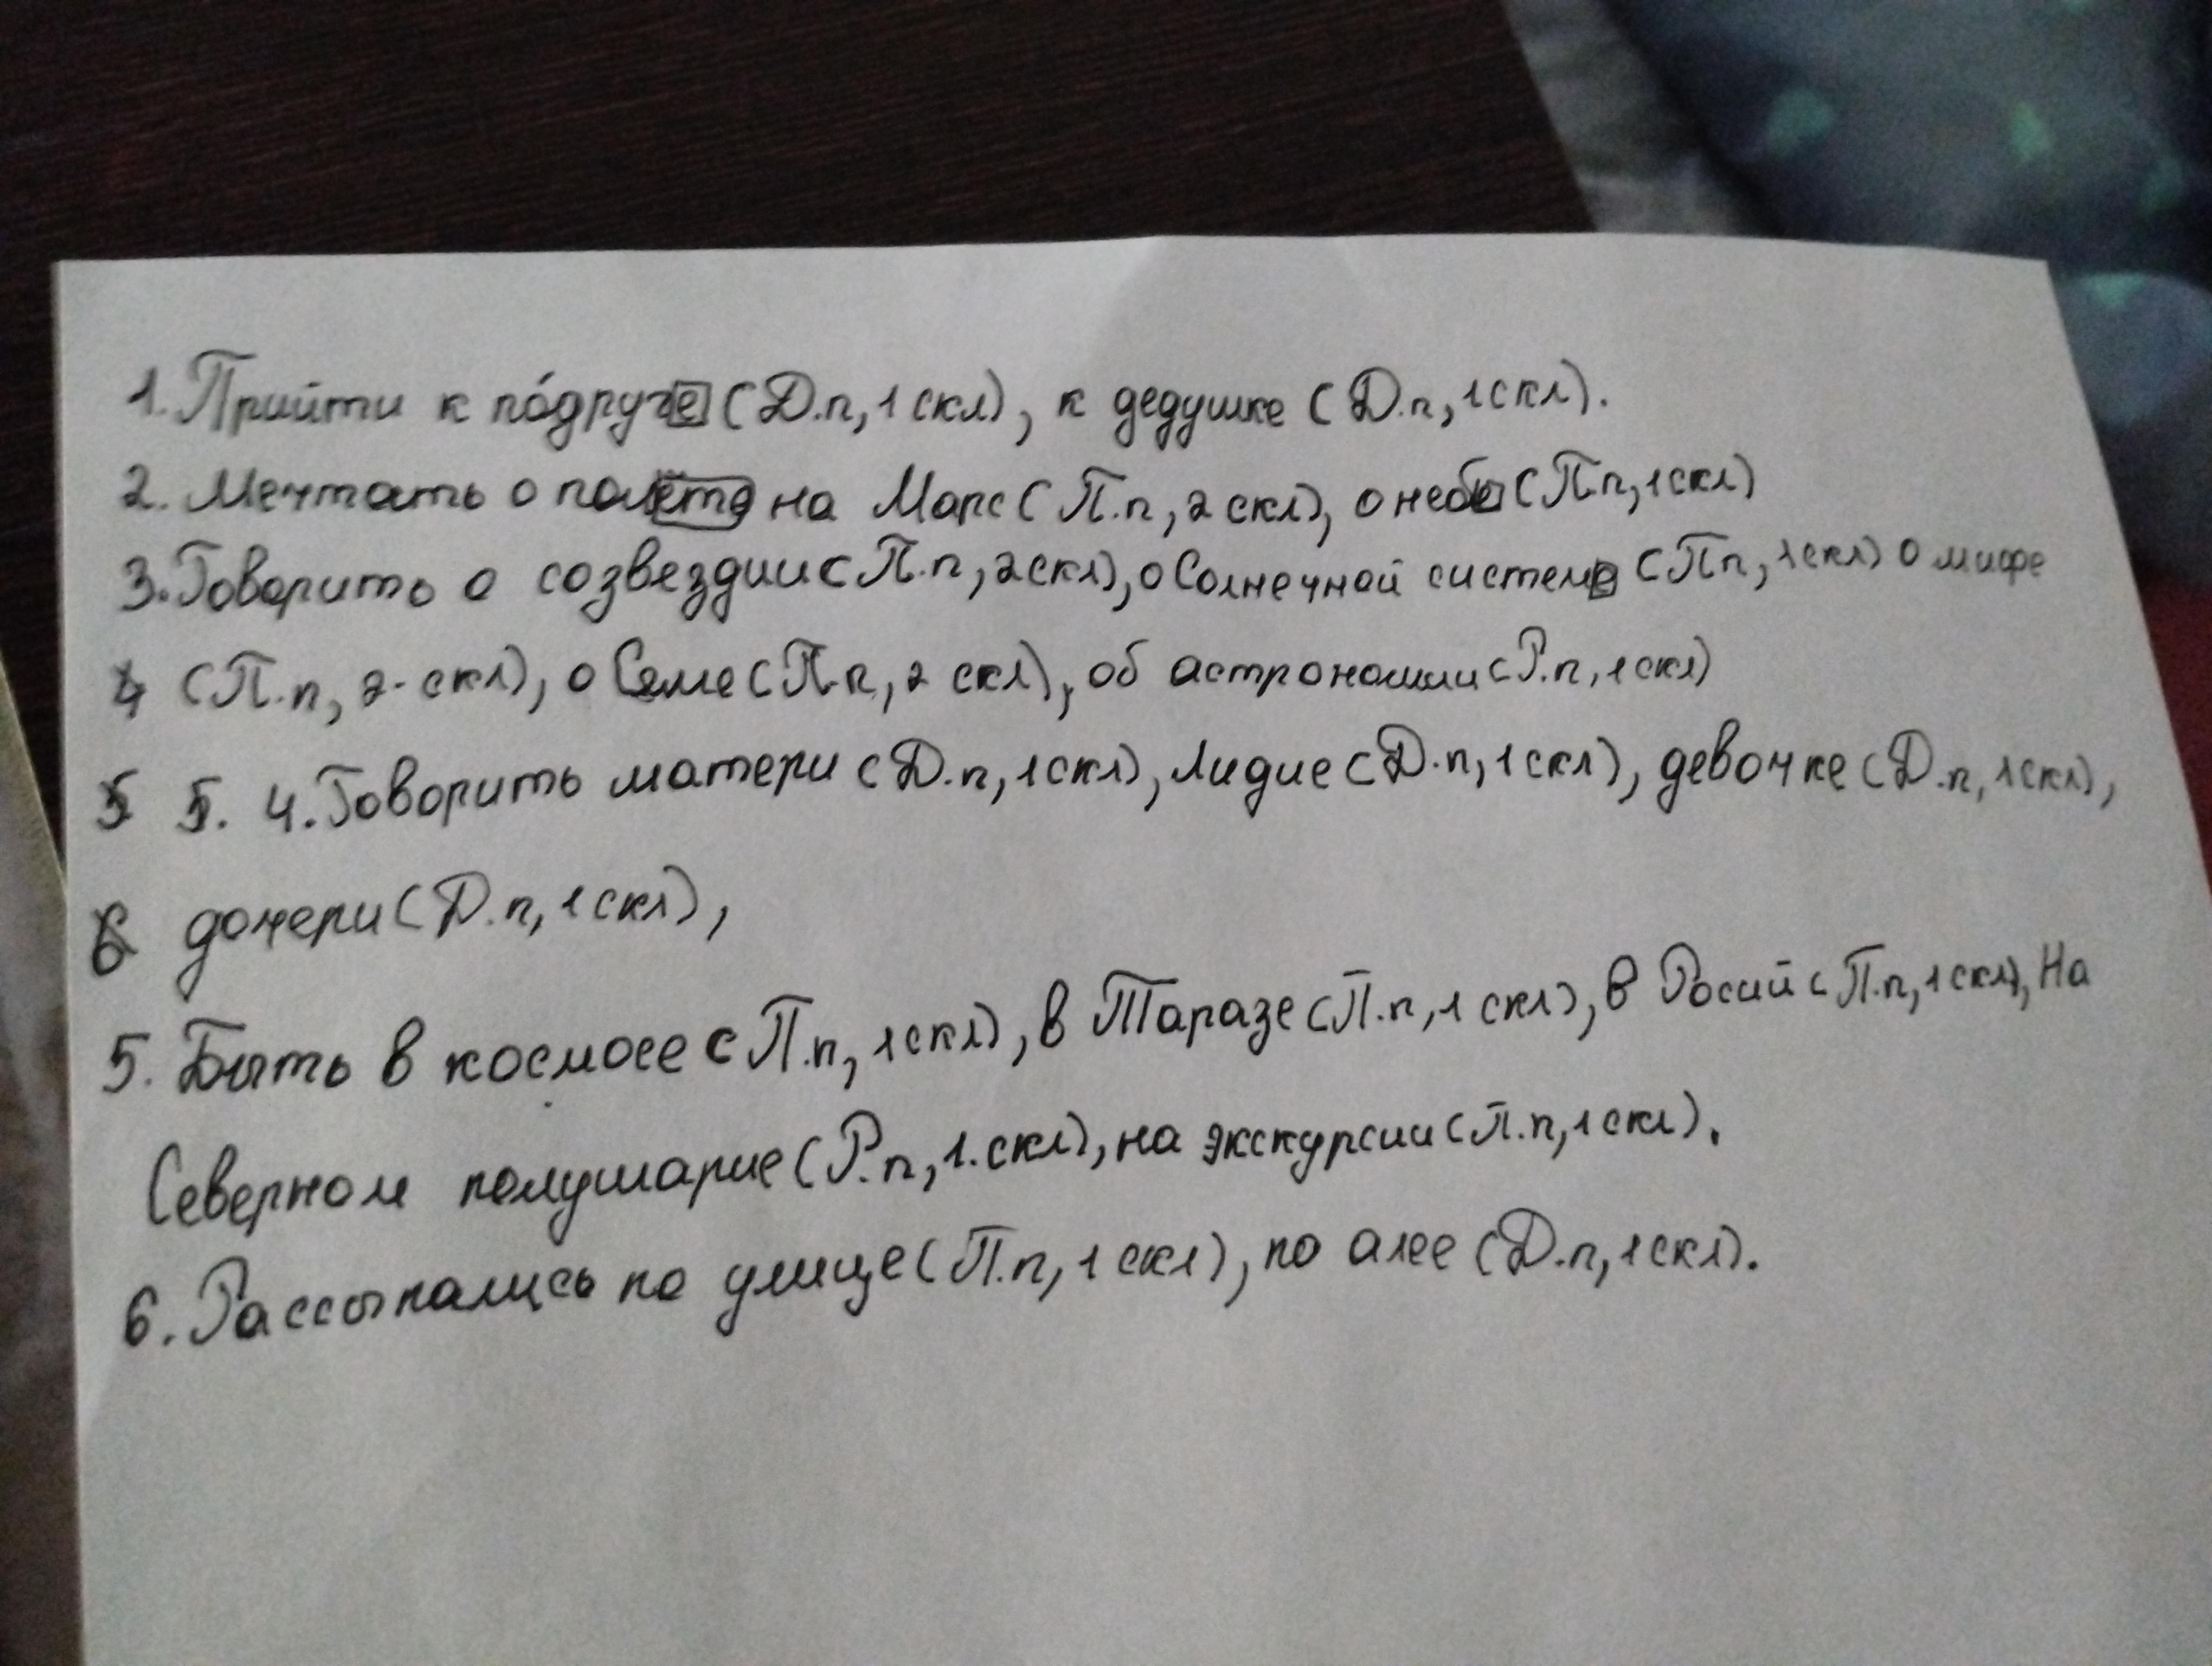 1. Прийти к по́друге (Д.п, 1 скл), к дедушке (Д.п, 1 скл).
2. Мечтать о полёте на Марс (П.п, 2 скл), о небе (П.п, 1 скл)
3. Говорить о созвездии (П.п, 2 скл), о Солнечной системе (Пп, 1 скл) о мифе
4 (П.п, 2-скл), о Семе (П.п, 2 скл), об астрономии (Р.п, 1 скл)
5 5. 4. Говорить матери (Д.п, 1 скл), Лидие (Д.п, 1 скл), девочке (Д.п, 1 скл),
6 дочери (Д.п, 1 скл),
5. Быть в космосе (П.п, 1 скл), в Таразе (П.п, 1 скл), в Росий (П.п, 1 скл), На
Северном полушарие (Р.п, 1. скл), на экскурсии (П.п, 1 скл).
6. Рассыпались по улице (П.п, 1 скл), по алее (Д.п, 1 скл).